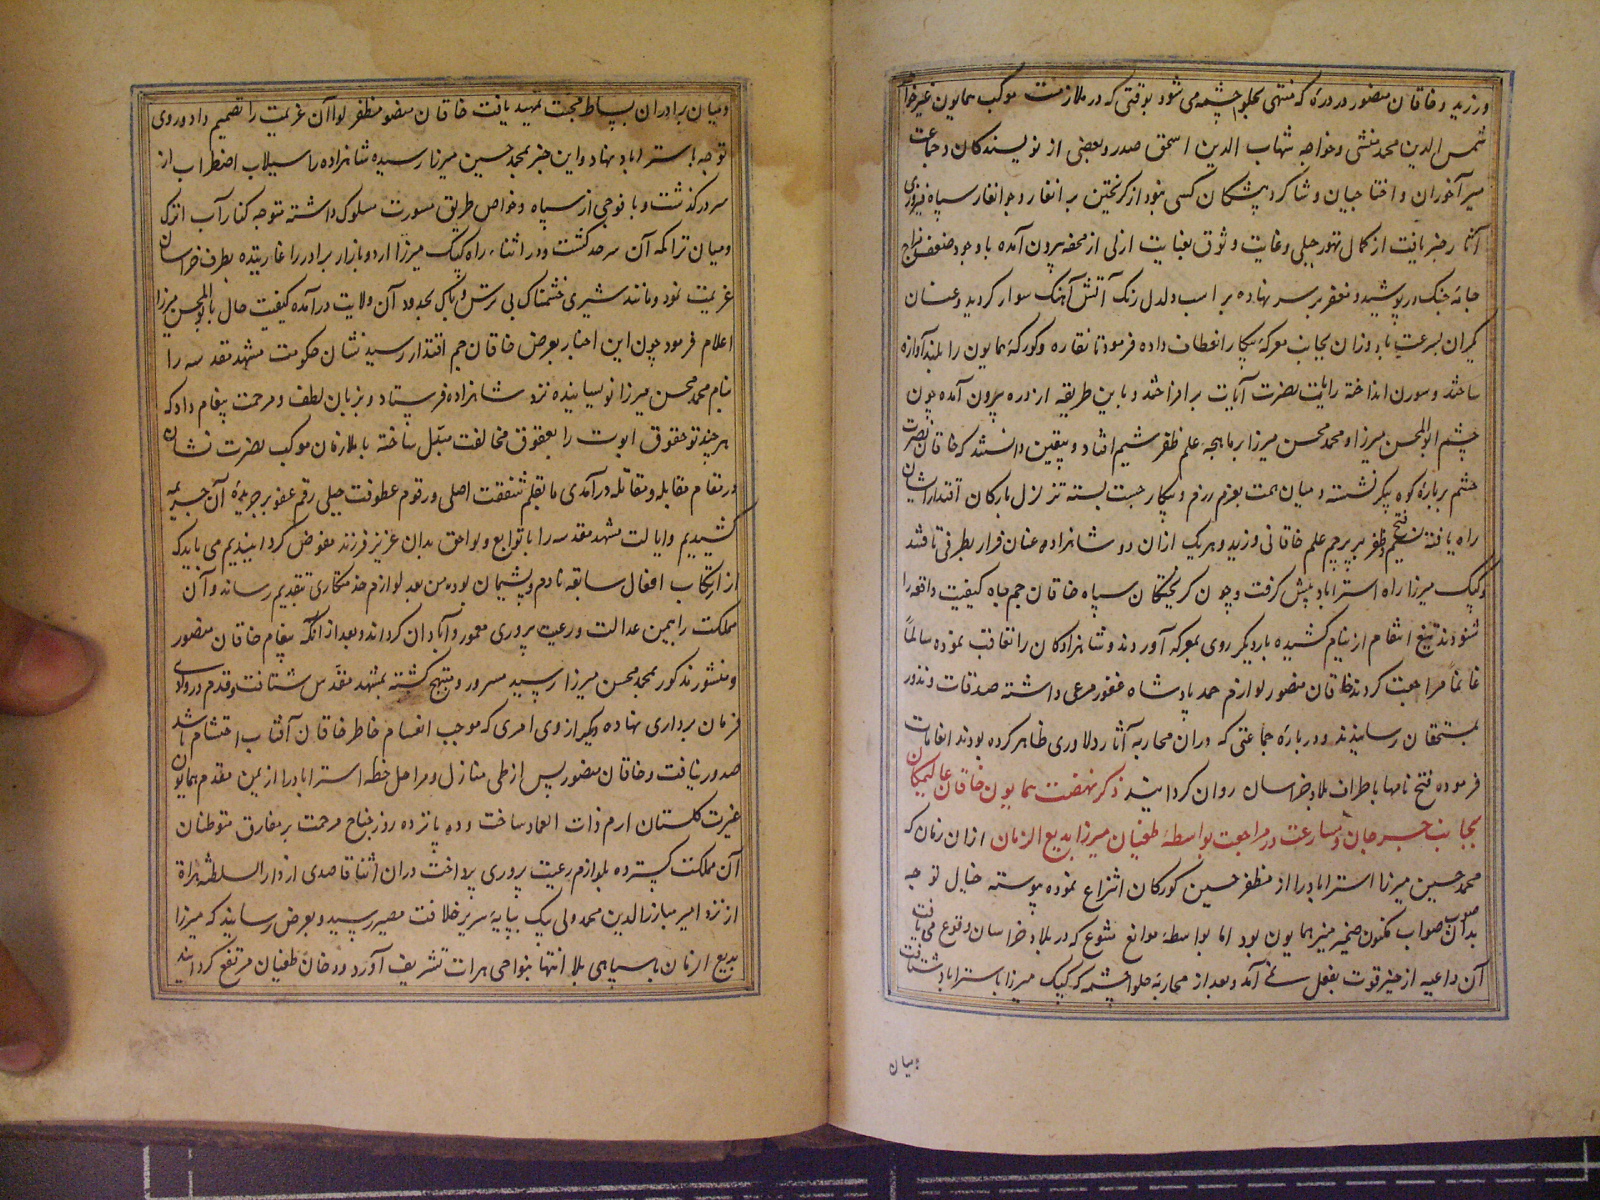 ورزید و خاقان منصور در درهٔ که منتهی بحلوا چشمه می شود بوقتی که در ملازمت موکب همایون غیر خواجه
شمس الدین محمد منشی و خواجه شهاب الدین اسحق صدر و بعضی از نویسندگان و جماعت
میر آخوران و اختاجیان و شاگرد پیشگان کسی نبود از گریختن برانغار و جوانغار سپاه فیروزی
آثار خبر یافت از کمال تهور جبلی و غایت وثوق بعنایت ازلی از محفه بیرون آمده با وجود ضعف مزاج
جامهٔ جنگ در پوشید و مغفر بر سر نهاده بر اسب دلدل رنگ آتش آهنگ سوار گردید و عنان
یکران بسرعت باد وزان بجانب معرکهٔ پیکار انعطاف داده فرمود تا نقاره و کورکهٔ همایون را بلند آوازه
ساختند و سورن انداخته رایت نصرت آیات برافراختند و باین طریقه از دره بیرون آمده چون
چشم ابوالمحسن میرزا و محمد محسن میرزا بر ماهچه علم ظفر شیم افتاد و بیقین دانستند که خاقان نصرت
حشم بر بارهٔ کوه پیکر نشسته و میان همت بعزم رزم و پیکار چست بسته تزلزل بارکان اقتدار ایشان
راه یافته نسیم فتح و ظفر بر پرچم علم خاقانی وزید و هر یک ازان دو شاهزاده عنان فرار بطرفی تافتند
و کپک میرزا راه استراباد پیش گرفت و چون گریختگان سپاه خاقان جم جاه کیفیت واقعه را
شنودند تیغ انتقام از نیام کشیده بار دیگر روی بمعرکه آوردند و شاهزادگان را تعاقب نموده سالماً
غانماً مراجعت کردند خاقان منصور لوازم حمد پادشاه غفور مرعی داشته صدقات و نذور
بمستحقان رسانیدند و دربارهٔ جماعتی که دران محاربه آثار دلاوری ظاهر کرده بودند انعامات
فرموده فتح نامها باطراف بلاد خراسان روان گردانید ذکر نهضت همایون خاقان عالیمکان
بجانب جرجان و مسارعت در مراجعت بواسطهٔ طغیان میرزا بدیع الزمان ازان زمان که
محمد حسین میرزا استراباد را از مظفر حسین گورکان انتزاع نموده پیوسته خیال توجه
بدان صوب صواب مکنون ضمیر منیر همایون بود اما بواسطهٔ موانع متنوع که در بلاد خراسان وقوع می یافت
آن داعیه از حیز قوت بفعل نمی آمد و بعد از محاربهٔ حلوا چشمه که کپک میرزا باستراباد شتافت
و میان
و میان برادران بساط محبت تمهید یافت خاقان منصور مظفر لوا آن عزیمت را تصمیم داده روی
توجه باستراباد نهاد و این خبر بمحمد حسین میرزا رسیده شاهزاده را سیلاب اضطراب از
سر درگذشت و با فوجی از سپاه و خواص طریق مشورت مسلوک داشته متوجه کنار آب اترک
و میان تراکمه آن سرحد گشت و در اثناء راه کپک میرزا اردو بازار برادر را غارتیده بطرف خراسان
عزیمت نمود و مانند شیری خشمناک بی ترس و باک بحدود آن ولایت درآمده کیفیت حال بابوالمحسن میرزا
اعلام فرمود چون این اخبار بعرض خاقان جم اقتدار رسید نشان حکومت مشهد مقدسه را
بنام محمد محسن میرزا نویسانیده نزد شاهزاده فرستاد و بزبان لطف و مرحمت پیغام داد که
هر چند تو حقوق ابوت را بعقوق مخالفت مبدل ساخته با ملازمان موکب نصرت نشان
در مقام مقابله و مقاتله درآمدی ما بقلم شفقت اصلی و رقوم عطوفت جبلی رقم عفو بر جریدهٔ آن جریمه
کشیدیم و ایالت مشهد مقدسه را با توابع و لواحق بدان عزیز فرزند مفوض گردانیدیم می باید که
از ارتکاب افعال سابقه نادم و پشیمان بوده من بعد لوازم خدمتکاری بتقدیم رساند و آن
مملکت را بیمن عدالت و رعیت پروری معمور و آبادان گرداند و بعد از آنکه پیغام خاقان منصور
و منشور مذکور بمحمد محسن میرزا رسید مسرور و مبتهج گشته بمشهد مقدس شتافت و قدم در وادی
فرمان برداری نهاده دیگر از وی امری که موجب انقسام خاطر خاقان آفتاب احتشام باشد
صدور نیافت و خاقان منصور پس از طی منازل و مراحل خطهٔ استراباد را از یمن مقدم همایون
غیرت گلستان ارم ذات العماد ساخت و ده پانزده روز جناح مرحمت بر مفارق متوطنان
آن مملکت گسترده بلوازم رعیت پروری پرداخت دران اثنا قاصدی از دار السلطنه هراة
از نزد امیر مبارز الدین محمد ولی بیک بپایهٔ سریر خلافت مصیر رسید و بعرض رسانید که میرزا
بدیع الزمان با سپاهی بلا انتها بنواحی هرات تشریف آورد و دخان طغیان مرتفع گردانید